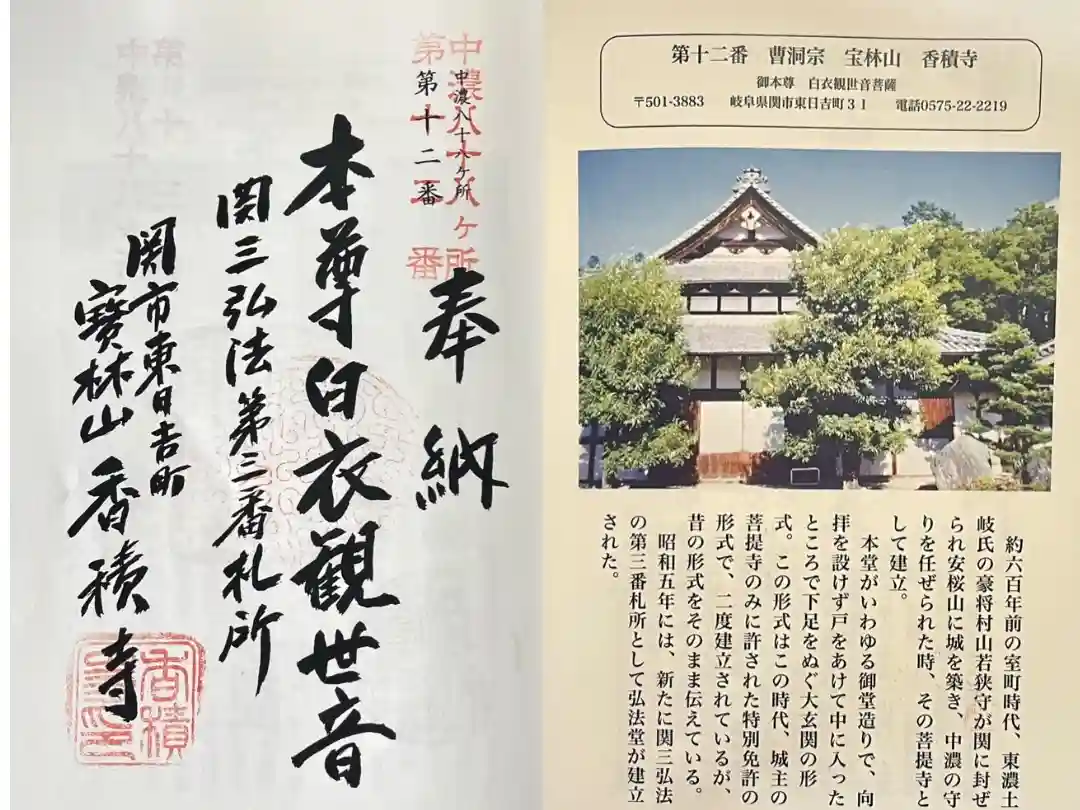 中濃八十八ヶ所
第十二番
中濃八十八ケ所
第十二番
奉納
本尊白衣觀世音
関三弘法第三番札所
関市東日吉町
寶林山 香積寺
香積
寺印
第十二番 曹洞宗 宝林山 香積寺
御本尊 白衣観世音菩薩
〒501-3883 岐阜県関市東日吉町31 電話0575-22-2219
約六百年前の室町時代、東濃土
岐氏の豪将村山若狭守が関に封ぜ
られ安桜山に城を築き、中濃の守
りを任ぜられた時、その菩提寺と
して建立。
本堂がいわゆる御堂造りで、向
拝を設けず戸をあけて中に入った
ところで下足をぬぐ大玄関の形
式。この形式はこの時代、城主の
菩提寺のみに許された特別免許の
形式で、二度建立されているが、
昔の形式をそのまま伝えている。
昭和五年には、新たに関三弘法
の第三番札所として弘法堂が建立
された。